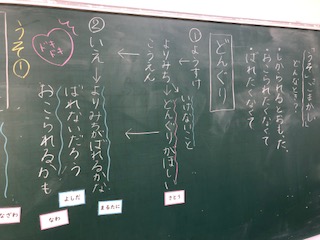 「うそ」「ごまかし」
どんなとき？
・しかられるとおもった。
・おこられたくなくて
・ばれたくなくて
どんぐり
①ようすけ
いけないこと
よりみち→どんぐりがほしい
こうえん
さとう
②いえ→よりみちがばれるかな
ばれないだろう
おこられるかも
まるたに
よしだ
なわ
どきどき
うそ①
なざわ